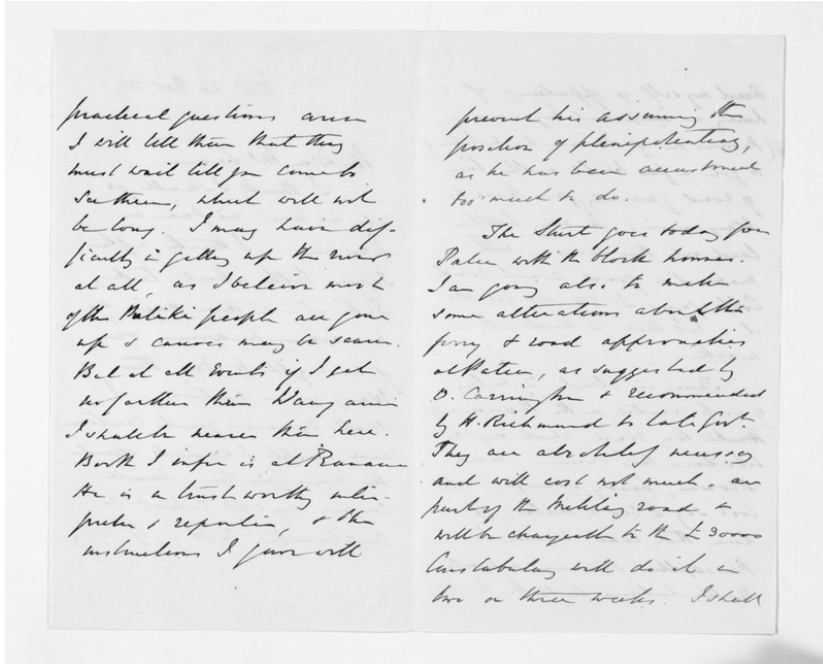 practical questions arise
I will tell them that they
must wait till you come to
see them, which will not
be long. I may have dif-
ficulty in getting up the river
at all, as I believe most
of the Putiki people are gone
up & canoes may be scarce.
But at all events if I get
no farther than Wanganui
I shall be nearer than here.
Booth I infer is at Ranana
He is a trustworthy inter-
preter & reporter, & the
instructions I gave will
prevent his assuming the
position of plenipotentiary,
as he has been accustomed
too much to do.
The Sturt goes today for
Patea with the block houses.
I am going also to make
some alterations about the
ferry & road approaches
at Patea, as suggested by
O. Carrington & recommended
by H. Richmond to late Govt.
They are absolutely necessary
and will cost not much, are
part of the road &
will be chargeable to the £30000
Constabulary will do it in
two or three weeks. I shall